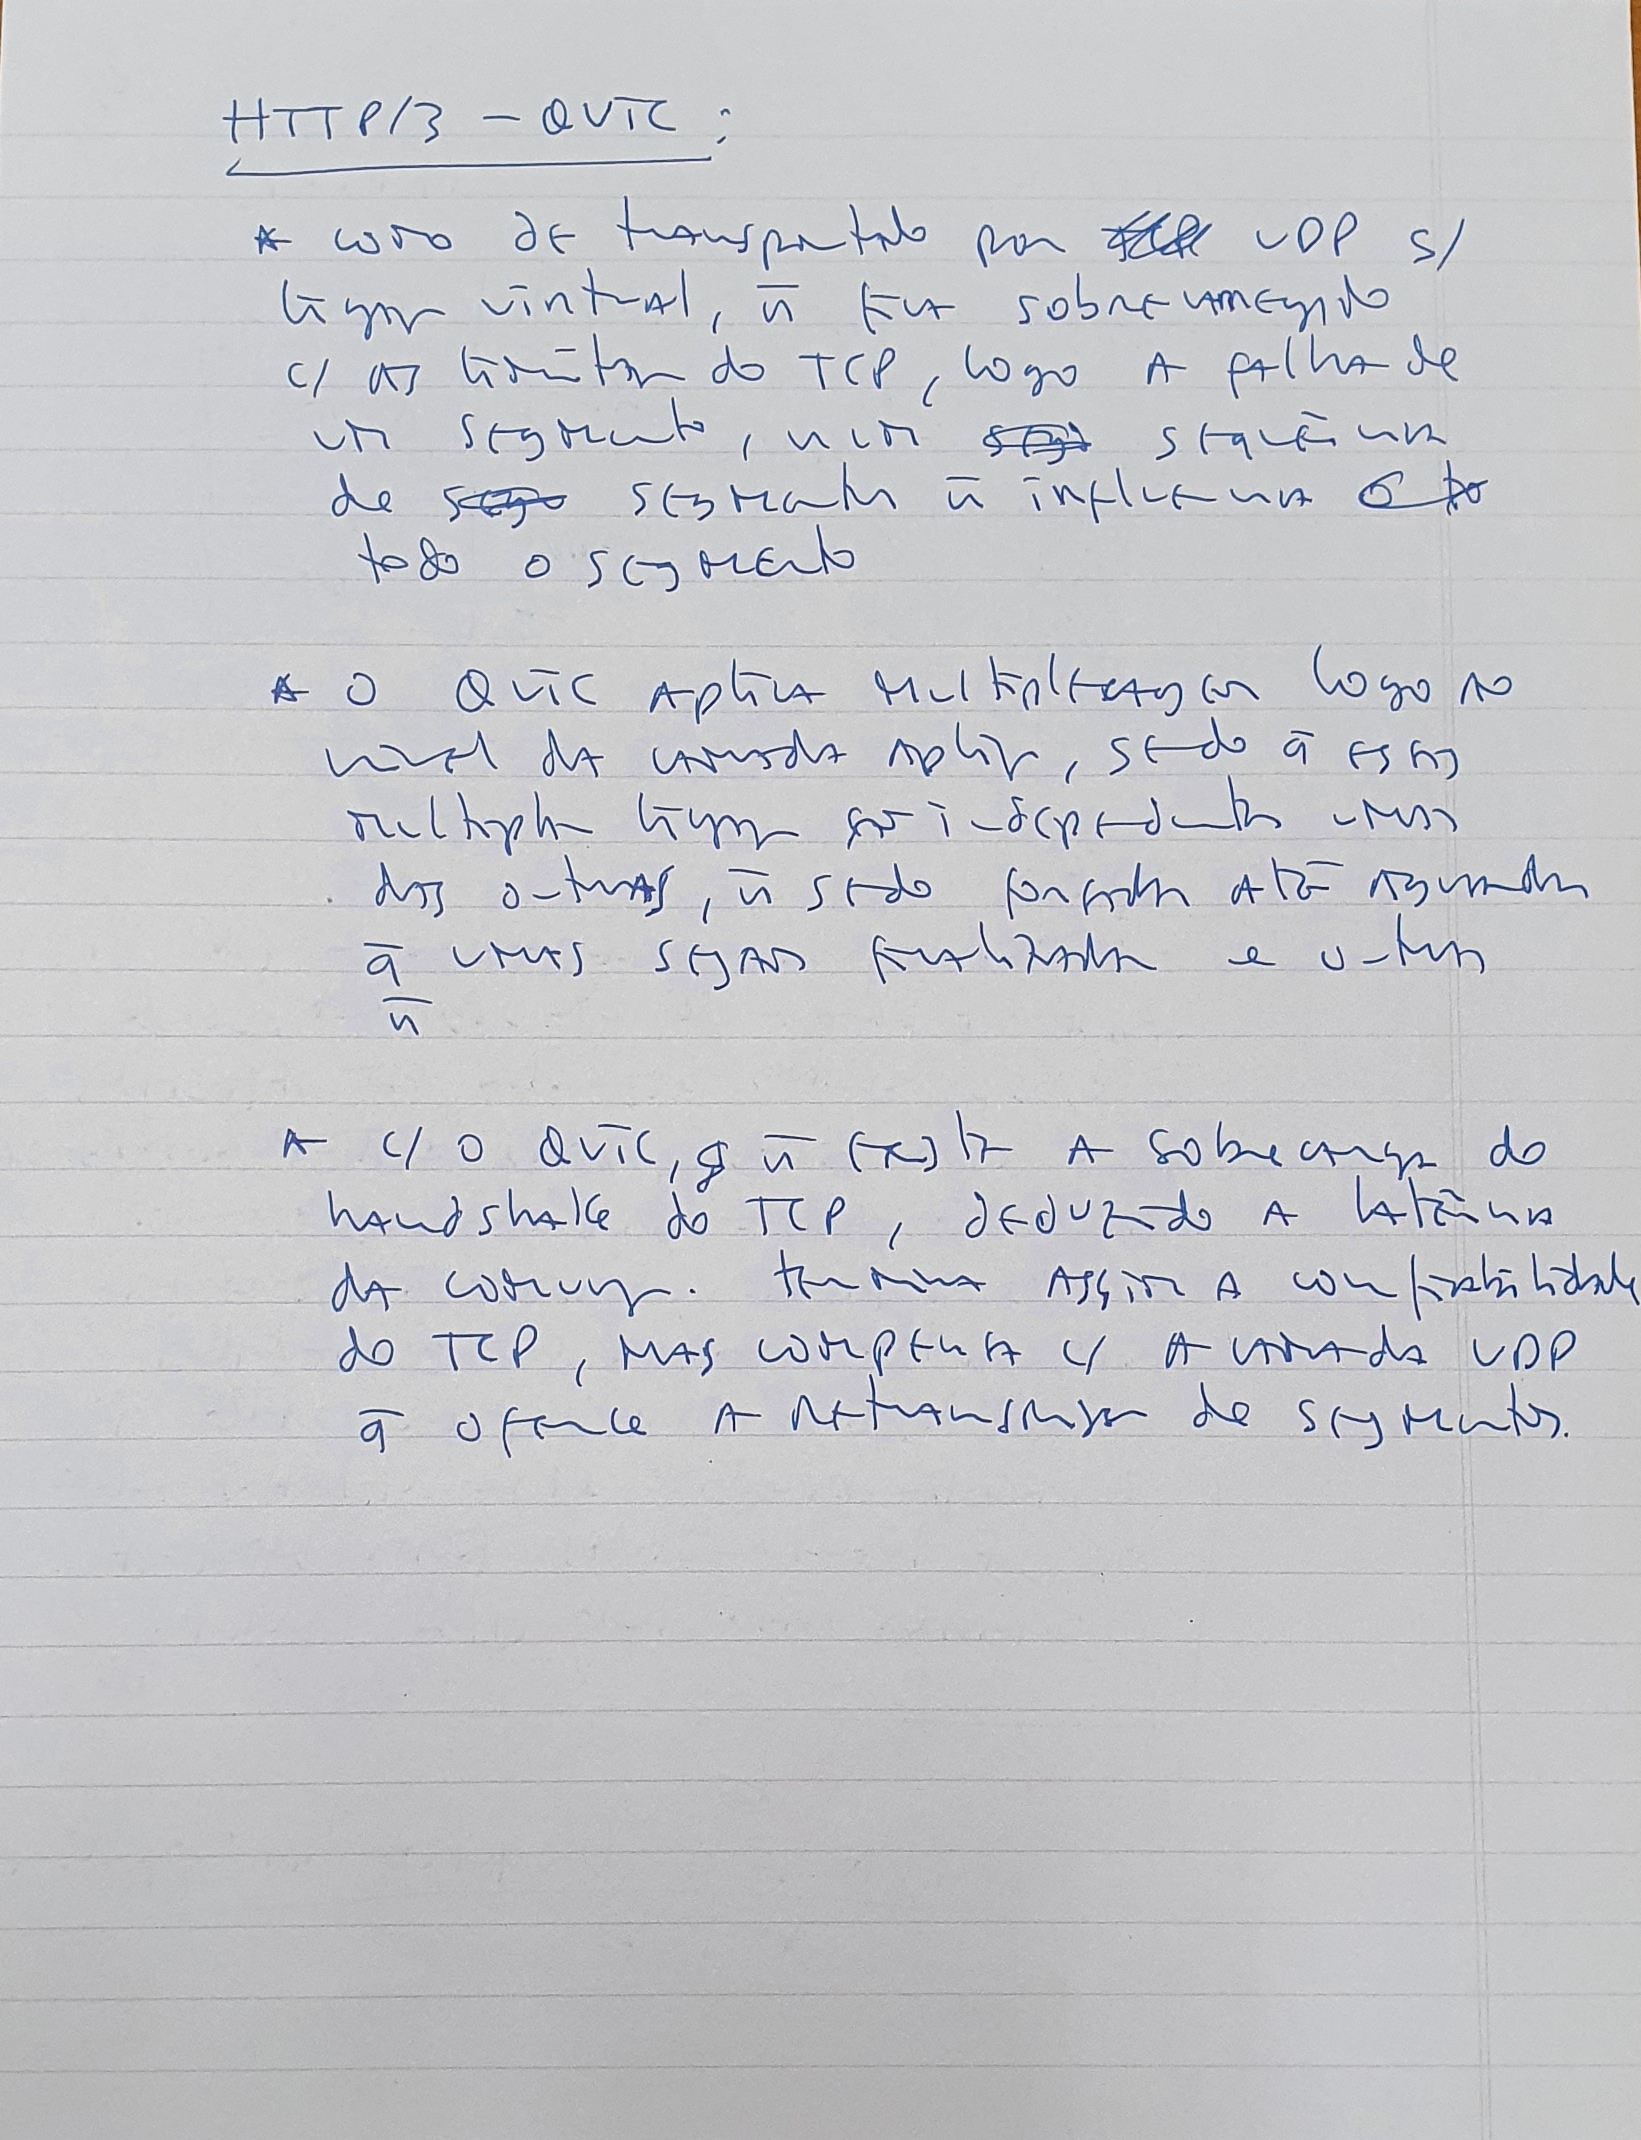 HTTP/3 - QUIC:
* como é transportado por UDP s/
ligação virtual, ñ fica sobrecarregado
c/ as limitações do TCP, logo a falha de
um segmento, num sequência
de segmentos ñ influencia
todo o segmento
* O QUIC aplica multiplexagem logo ao
nível da camada aplição, sendo q̄ essas
multiplas ligações são independentes umas
das outras, ñ sendo forçadas até aguardar
q̄ umas sejam finalizadas e outras
ñ
* c/ o QUIC, ñ existe a sobrecarga do
handshake do TCP, reduzindo a latência
da comunicação. termina assim a confiabilidade
do TCP, mas compensa c/ a camada UDP
q̄ oferece a retransmissão de segmentos.